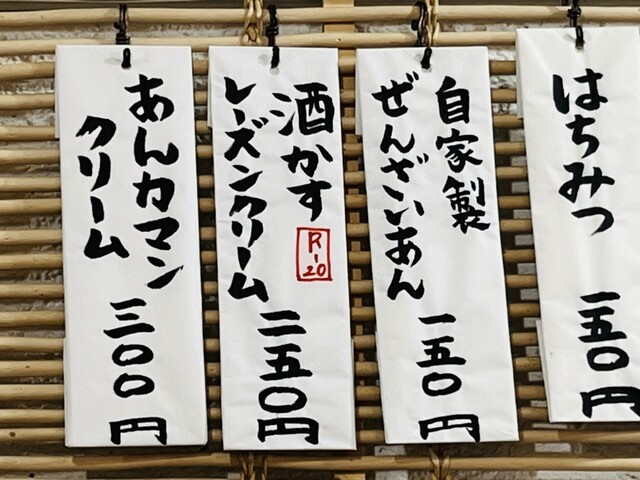 はちみつ
一五〇円
自家製
ぜんざいあん
一五〇円
酒かす
R-20
レーズンクリーム
二五〇円
あんカマン
クリーム
三〇〇円